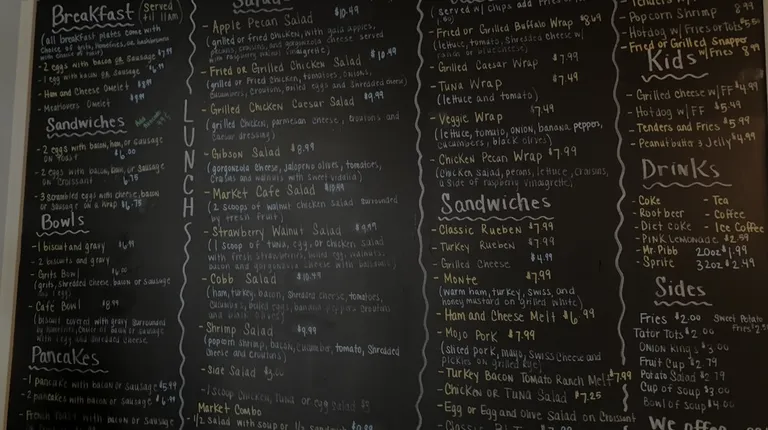 Breakfast (Served til 11AM)
(all breakfast plates come with
choice of grits, homefries, or hashbrowns
with choice of toast)
- 2 eggs with bacon OR sausage $7.99
- 1 egg with bacon OR sausage
- Ham and Cheese Omelet $8.99
- Meatlovers Omelet $9.99
Sandwiches
- 2 eggs with bacon, ham, or sausage
on toast $6.00
- 2 eggs with bacon, ham, or sausage
on croissant $6.75
- 3 scrambled eggs with cheese, bacon
or sausage on a wrap $6.75
Bowls
- 1 biscuit and gravy
- 2 biscuits and gravy
- Grits Bowl $6.00
(grits, shredded cheese, bacon or sausage
1 egg)
- Cafe Bowl $8.99
(biscuit covered with gravy surrounded
by homefries, choice of bacon or sausage
with 1 egg and shredded cheese)
Pancakes
- 1 pancake with bacon or sausage $5.99
- 2 pancakes with bacon or sausage
- French toast with bacon or sausage
LUNCH
Salad
- Apple Pecan Salad $10.99
(grilled or fried chicken, with gala apples,
pecans, craisins, and gorgonzola cheese served
with raspberry walnut vinaigrette)
- Fried or Grilled Chicken Salad $10.99
(grilled or fried chicken, tomatoes, onions,
cucumbers, croutons, boiled eggs and shredded cheese)
- Grilled Chicken Caesar Salad $9.99
(grilled chicken, parmesan cheese, croutons and
caesar dressing)
- Gibson Salad $8.99
(gorgonzola cheese, jalapeno olives, tomatoes,
craisins and walnuts with sweet vidalia)
- Market Cafe Salad $10.99
(2 scoops of walnut chicken salad surrounded
by fresh fruit)
- Strawberry Walnut Salad $9.99
(1 scoop of tuna, egg, or chicken salad
with fresh strawberries, boiled egg, walnuts,
bacon and gorgonzola cheese with balsamic)
- Cobb Salad $10.99
(ham, turkey, bacon, shredded cheese, tomatoes,
cucumbers, boiled eggs, banana peppers, croutons
and black olives)
- Shrimp Salad $9.99
(popcorn shrimp, bacon, cucumber, tomato, shredded
cheese and croutons)
- side salad $3.00
- 1 scoop chicken, tuna or egg salad $3
Market Combo
- 1/2 salad with soup or 1/2 sandwich
(served w/ chips add fries
- Fried or Grilled Buffalo Wrap $8.49
(lettuce, tomato, shredded cheese w/
ranch or bluecheese)
- Grilled Caesar Wrap $7.99
- Tuna Wrap $7.49
(lettuce and tomato)
- Veggie Wrap $7.49
(lettuce, tomato, onion, banana peppers,
cucumbers, black olives)
- Chicken Pecan Wrap $7.99
(chicken salad, pecans, lettuce, craisins,
a side of raspberry vinaigrette)
Sandwiches
- Classic Rueben $7.99
- Turkey Rueben $7.99
- Grilled Cheese $4.99
- Monte $7.99
(warm ham, turkey, swiss, and
honey mustard on grilled white)
- Ham and Cheese Melt $6.99
- Mojo Pork $7.99
(sliced pork, mayo, swiss cheese and
pickles on grilled rye)
- Turkey Bacon Tomato Ranch Melt $7.99
- Chicken or Tuna Salad $7.25
- Egg or Egg and Olive Salad on Croissant
- Classic BLT
- Popcorn Shrimp 8.99
- Hotdog w/ Fries or Tots $5.50
- Fried or Grilled Snapper
w/ Fries 8.99
Kids
- Grilled cheese w/ FF $4.99
- Hotdog w/ FF $5.49
- Tenders and Fries $5.99
- Peanut butter & Jelly $4.99
Drinks
- Coke - Tea
- Root beer - Coffee
- Diet coke - Ice Coffee
- Pink Lemonade $2.59
- Mr. Pibb 20oz $1.99
- Sprite 32oz $2.49
Sides
Fries $2.00 Sweet Potato
Fries
Tator Tots $2.00
Onion Rings $3.00
Fruit Cup $2.79
Potato Salad $2.79
Cup of soup $3.00
Bowl of soup $4.00
We offer